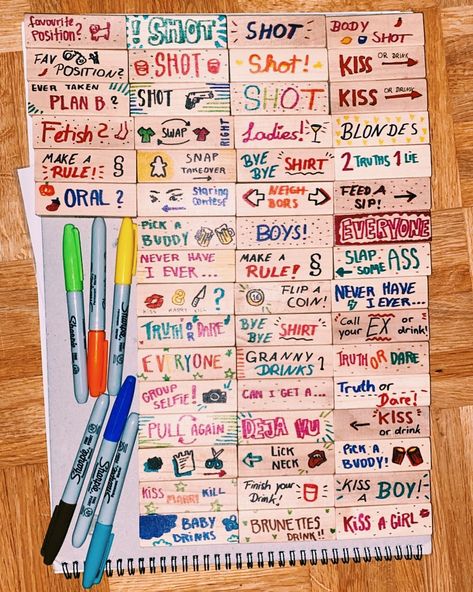 favourite Position?
! SHOT
SHOT
BODY SHOT
FAV POSITION?
SHOT
Shot!
KISS OR DRINK
EVER TAKEN PLAN B?
SHOT
SHOT
KISS OR DRINK
Fetish?
SWAP RIGHT
Ladies!
BLONDES
MAKE A RULE! §
SNAP TAKEOVER
BYE BYE SHIRT
2 TRUTHS 1 LIE
ORAL?
Staring contest
NEIGHBORS
FEED A SIP!
PiCK A BUDDY
BOYS!
EVERYONE
NEVER HAVE I EVER...
MAKE A RULE! §
SLAP someASS
KISS MARRY KILL ?
FLIP A COIN!
NEVER HAVE I EVER...
TRUTH OR DARE
BYE BYE SHIRT
Call your EX or drink!
EVERYONE
GRANNY DRINKS?
TRUTH OR DARE
GROUP SELFIE!
CAN I GET A...
Truth or Dare!
PULL AGAIN
DEJA VU
KISS or drink
LICK NECK
PICK A BUDDY!
KISS MARRY KILL
Finish your Drink!
KISS A BOY!
BABY DRINKS
BRUNETTES DRINK!!
KISS A GIRL
Sharpie
Sharpie
Sharpie
Sharpie
Sharpie